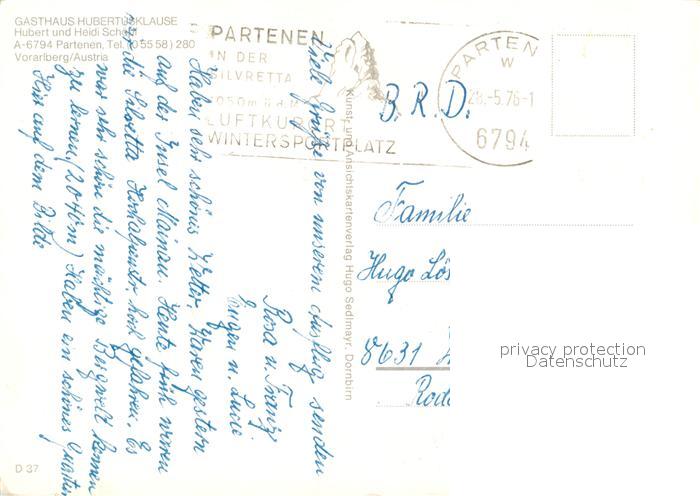 GASTHAUS HUBERTUSKLAUSE
Hubert und Heidi
A-6794 Partenen, Tel. (0 55 58) 280
Vorarlberg/Austria
PARTENEN
IN DER
SILVRETTA
1050m ü.d.M.
LUFTKURORT
WINTERSPORTPLATZ
PARTEN
W
28.-5.76-1
6794
Viele Grüße von unserem Ausflug senden
Rosa u. Franz
Eugen u. Lucie
Haben sehr schönes Wetter, Waren gestern
auf der Insel Mainau. Heute früh waren
wir die Silvretta Hochalpenstr. hoch gefahren. Es
war sehr schön die mächtige Bergwelt kennen
zu lernen, (2040m) Haben ein schönes Quartier
Hier auf dem Bilde
Kunst- und Ansichtskartenverlag Hugo Sedlmayr, Dornbirn
B. R. D.
Familie
Hugo Lös
8631
Rod
privacy protection
Datenschutz
D 37